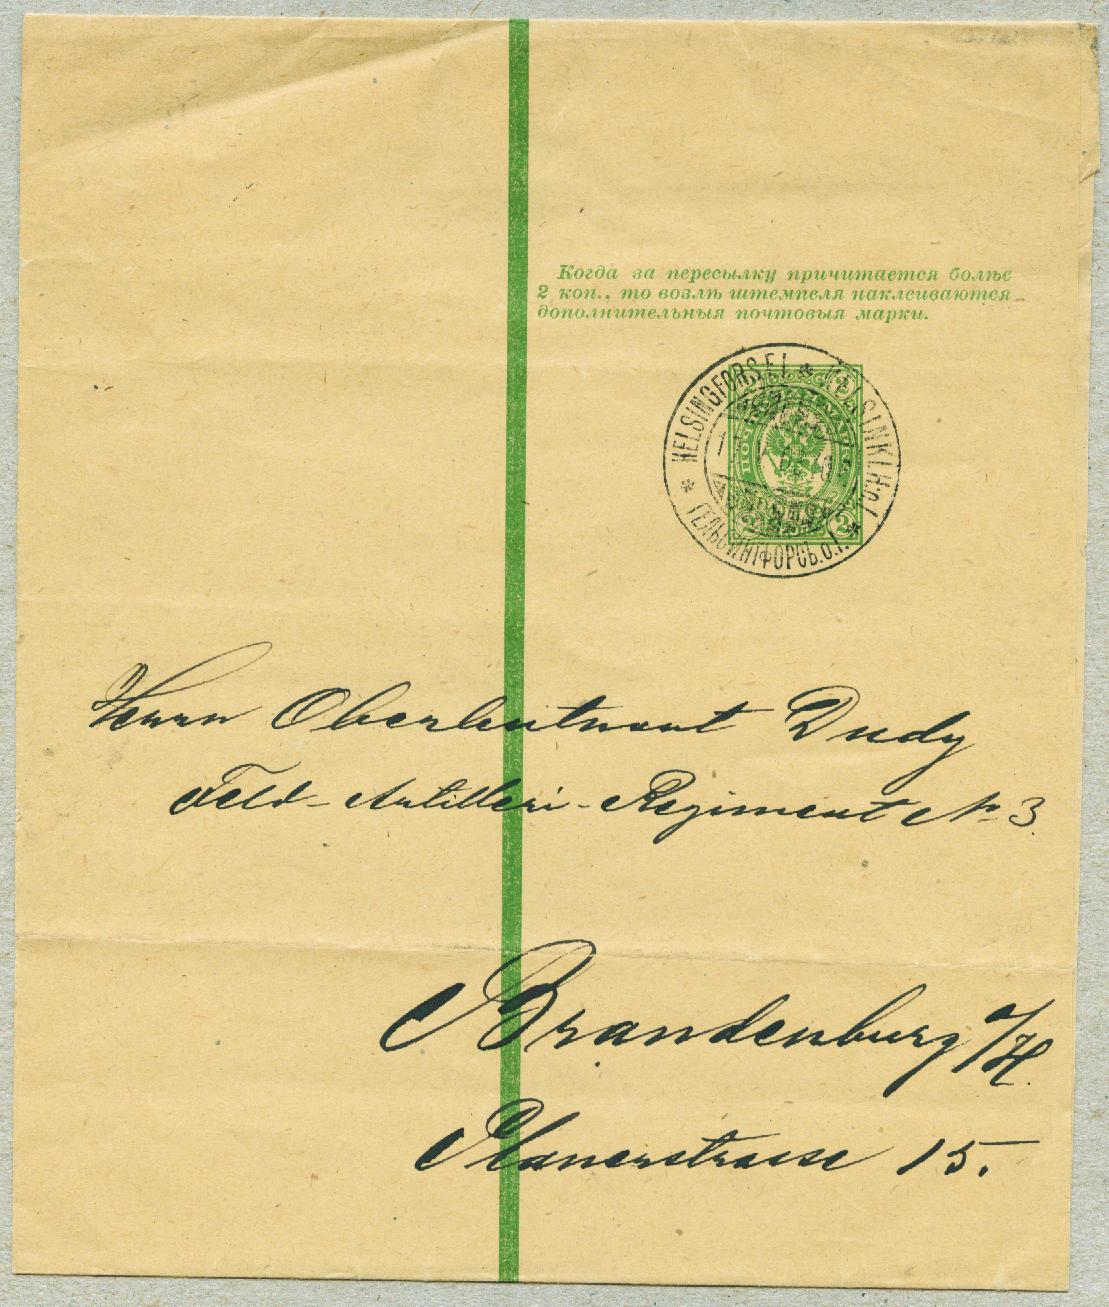 Когда за пересылку причитается болѣе
2 коп., то возлѣ штемпеля наклеиваются
дополнительныя почтовыя марки.
HELSINGFORS.F.I. * HELSINKI.H:S.I * ГЕЛЬСИНГФОРСЪ.О.I. *
2
2
Herrn Oberleutnant Dudy
Feld-Artilleri-Regiment No 3.
Brandenburg a/H.
Planerstrasse 15.